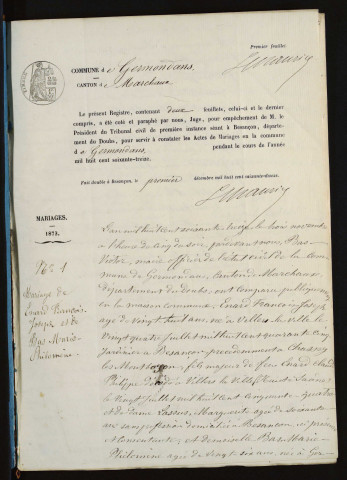 Premier feuillet
COMMUNE d e Germondans
CANTON d e Marchaux
Le présent Registre, contenant deux feuillets, celui-ci et le dernier
compris, a été coté et paraphé par nous, Juge, pour empêchement de M. le
Président du Tribunal civil de première instance séant à Besançon, départe-
ment du Doubs, pour servir à constater les Actes de Mariages en la commune
d e Germondans pendant le cours de l'année
mil huit cent soixante-treize.
Fait double à Besançon, le premier décembre mil huit cent soixante-douze.
MARIAGES.
1873.
No 1
Mariage de
Enard François
Joseph et de
Bas Marie
Philomène
L'an mil huit cent soixante treize le trois
à heure de cinq du soir, pardevant nous, Bas
Victor, maire officier de l'état civil de la com-
mune de Germondans, Canton de Marchaux
département du doubs, ont comparu publiquement
en la maison commune, Enard François Joseph
agé de vingt huit ans, né à Villers
vingt quatre juillet mil huit cent quarante cinq
Jardinier à Besançon précédemment à
fils majeur de feu Enard Claude
Philippe décédé à Villers (haute Saône)
le vingt juillet mil huit cent cinquante quatre
et de dame Lassus Marguerite agée de soixante
ans sans profession domiciliée à Besançon, ici présente
et consentante, et demoiselle Bas Marie
Philomène agée de vingt six ans, née à Ger-